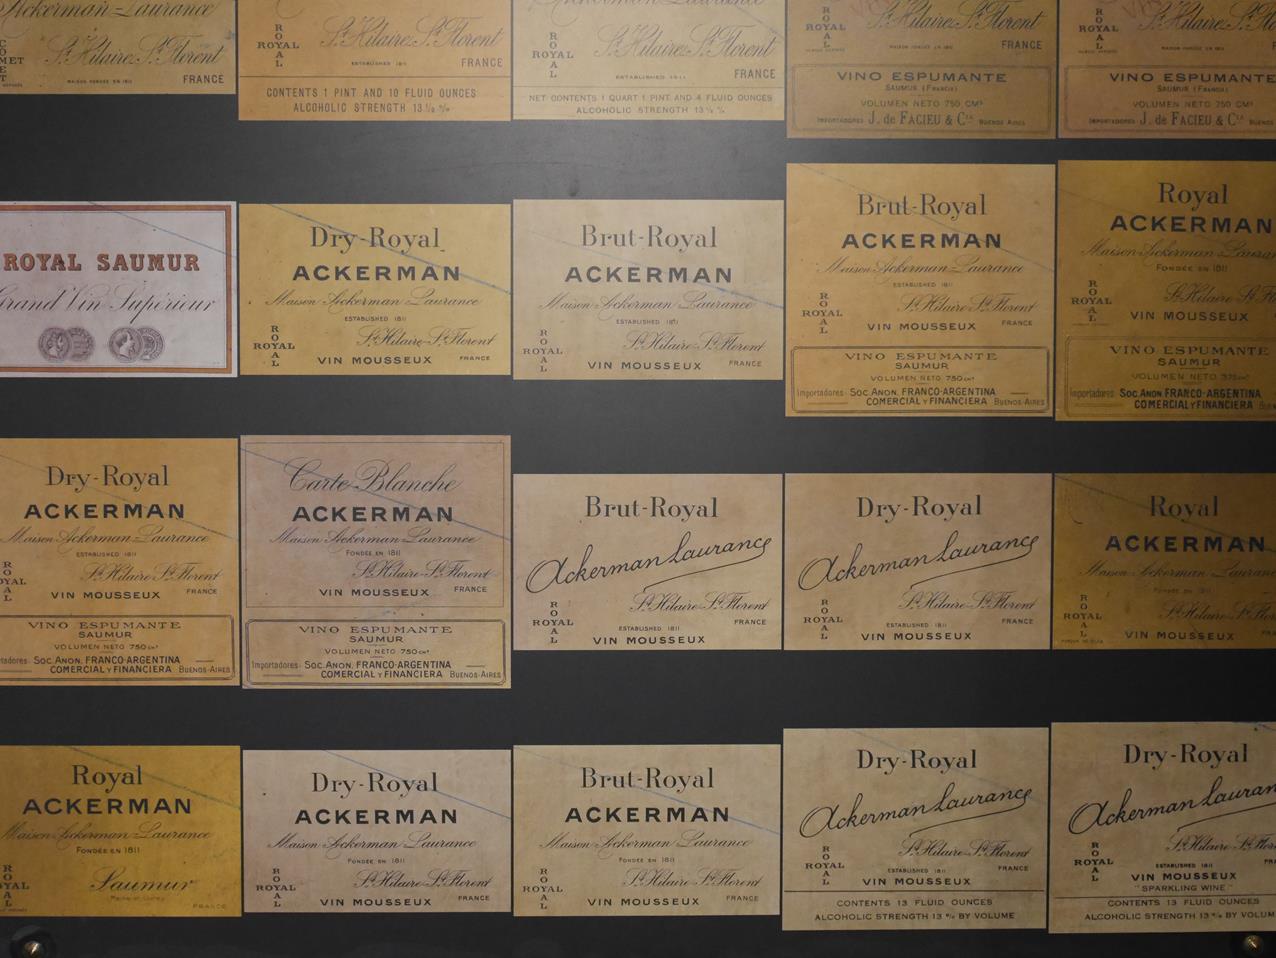 Ackerman-Laurance
St. Hilaire-St. Florent
MAISON FONDÉE EN 1811
FRANCE
ROYAL
ROYAL
St. Hilaire-St. Florent
ESTABLISHED 1811
FRANCE
CONTENTS 1 PINT AND 10 FLUID OUNCES
ALCOHOLIC STRENGTH 13 ½ %
Ackerman-Laurance
ROYAL
ROYAL
St. Hilaire-St. Florent
ESTABLISHED 1811
FRANCE
NET CONTENTS 1 QUART 1 PINT AND 4 FLUID OUNCES
ALCOHOLIC STRENGTH 13 ½ %
ROYAL
ROYAL
St. Hilaire-St. Florent
MAISON FONDÉE EN 1811
FRANCE
VINO ESPUMANTE
SAUMUR (FRANCIA)
VOLUMEN NETO 750 CM³
IMPORTADORES J. de FACIEU & Cía BUENOS AIRES
ROYAL
ROYAL
St. Hilaire-St.
MAISON FONDÉE EN 1811
VINO ESPUMANTE
SAUMUR (FRANCIA)
VOLUMEN NETO 750 CM³
IMPORTADORES J. de FACIEU & Cía BUENOS
ROYAL SAUMUR
Grand Vin Supérieur
Dry-Royal
ACKERMAN
Maison Ackerman-Laurance
ESTABLISHED 1811
ROYAL
ROYAL
St. Hilaire-St. Florent
VIN MOUSSEUX
FRANCE
Brut-Royal
ACKERMAN
Maison Ackerman-Laurance
ESTABLISHED 1811
ROYAL
ROYAL
St. Hilaire-St. Florent
VIN MOUSSEUX
FRANCE
Brut-Royal
ACKERMAN
Maison Ackerman-Laurance
ESTABLISHED 1811
ROYAL
ROYAL
St. Hilaire-St. Florent
VIN MOUSSEUX
FRANCE
VINO ESPUMANTE
SAUMUR
VOLUMEN NETO 750 cm³
Importadores Soc. Anon. FRANCO-ARGENTINA
COMERCIAL Y FINANCIERA BUENOS-AIRES
Royal
ACKERMAN
Maison Ackerman-Laurance
FONDÉE EN 1811
ROYAL
ROYAL
St. Hilaire-St.
VIN MOUSSEUX
VINO ESPUMANTE
SAUMUR
VOLUMEN NETO 375 cm³
Importadores Soc. Anon. FRANCO-ARGENTINA
COMERCIAL Y FINANCIERA
Dry-Royal
ACKERMAN
Maison Ackerman-Laurance
ESTABLISHED 1811
ROYAL
St. Hilaire-St. Florent
VIN MOUSSEUX
FRANCE
VINO ESPUMANTE
SAUMUR
VOLUMEN NETO 750 cm³
Soc. Anon. FRANCO-ARGENTINA
COMERCIAL Y FINANCIERA BUENOS-AIRES
Carte Blanche
ACKERMAN
Maison Ackerman-Laurance
FONDÉE EN 1811
St. Hilaire-St. Florent
VIN MOUSSEUX
FRANCE
VINO ESPUMANTE
SAUMUR
VOLUMEN NETO 750 cm³
Importadores Soc. Anon. FRANCO-ARGENTINA
COMERCIAL Y FINANCIERA BUENOS-AIRES
Brut-Royal
Ackerman Laurance
ROYAL
ROYAL
St. Hilaire-St. Florent
ESTABLISHED 1811
FRANCE
VIN MOUSSEUX
Dry-Royal
Ackerman Laurance
ROYAL
ROYAL
St. Hilaire-St. Florent
ESTABLISHED 1811
FRANCE
VIN MOUSSEUX
Royal
ACKERMAN
Maison Ackerman-Laurance
FONDÉE EN 1811
ROYAL
ROYAL
St. Hilaire-St.
VIN MOUSSEUX
Royal
ACKERMAN
Maison Ackerman-Laurance
FONDÉE EN 1811
ROYAL
Saumur
FRANCE
Dry-Royal
ACKERMAN
Maison Ackerman-Laurance
FONDÉE EN 1811
ROYAL
ROYAL
St. Hilaire-St. Florent
VIN MOUSSEUX
FRANCE
Brut-Royal
ACKERMAN
Maison Ackerman-Laurance
FONDÉE EN 1811
ROYAL
ROYAL
St. Hilaire-St. Florent
VIN MOUSSEUX
FRANCE
Dry-Royal
Ackerman Laurance
ROYAL
ROYAL
St. Hilaire-St. Florent
ESTABLISHED 1811
FRANCE
VIN MOUSSEUX
CONTENTS 13 FLUID OUNCES
ALCOHOLIC STRENGTH 13 % BY VOLUME
Dry-Royal
Ackerman Lauran
ROYAL
ROYAL
St. Hilaire-St.
ESTABLISHED 1811
VIN MOUSSEUX
"SPARKLING WINE"
CONTENTS 13 FLUID OUNCES
ALCOHOLIC STRENGTH 13 % BY VOLUM